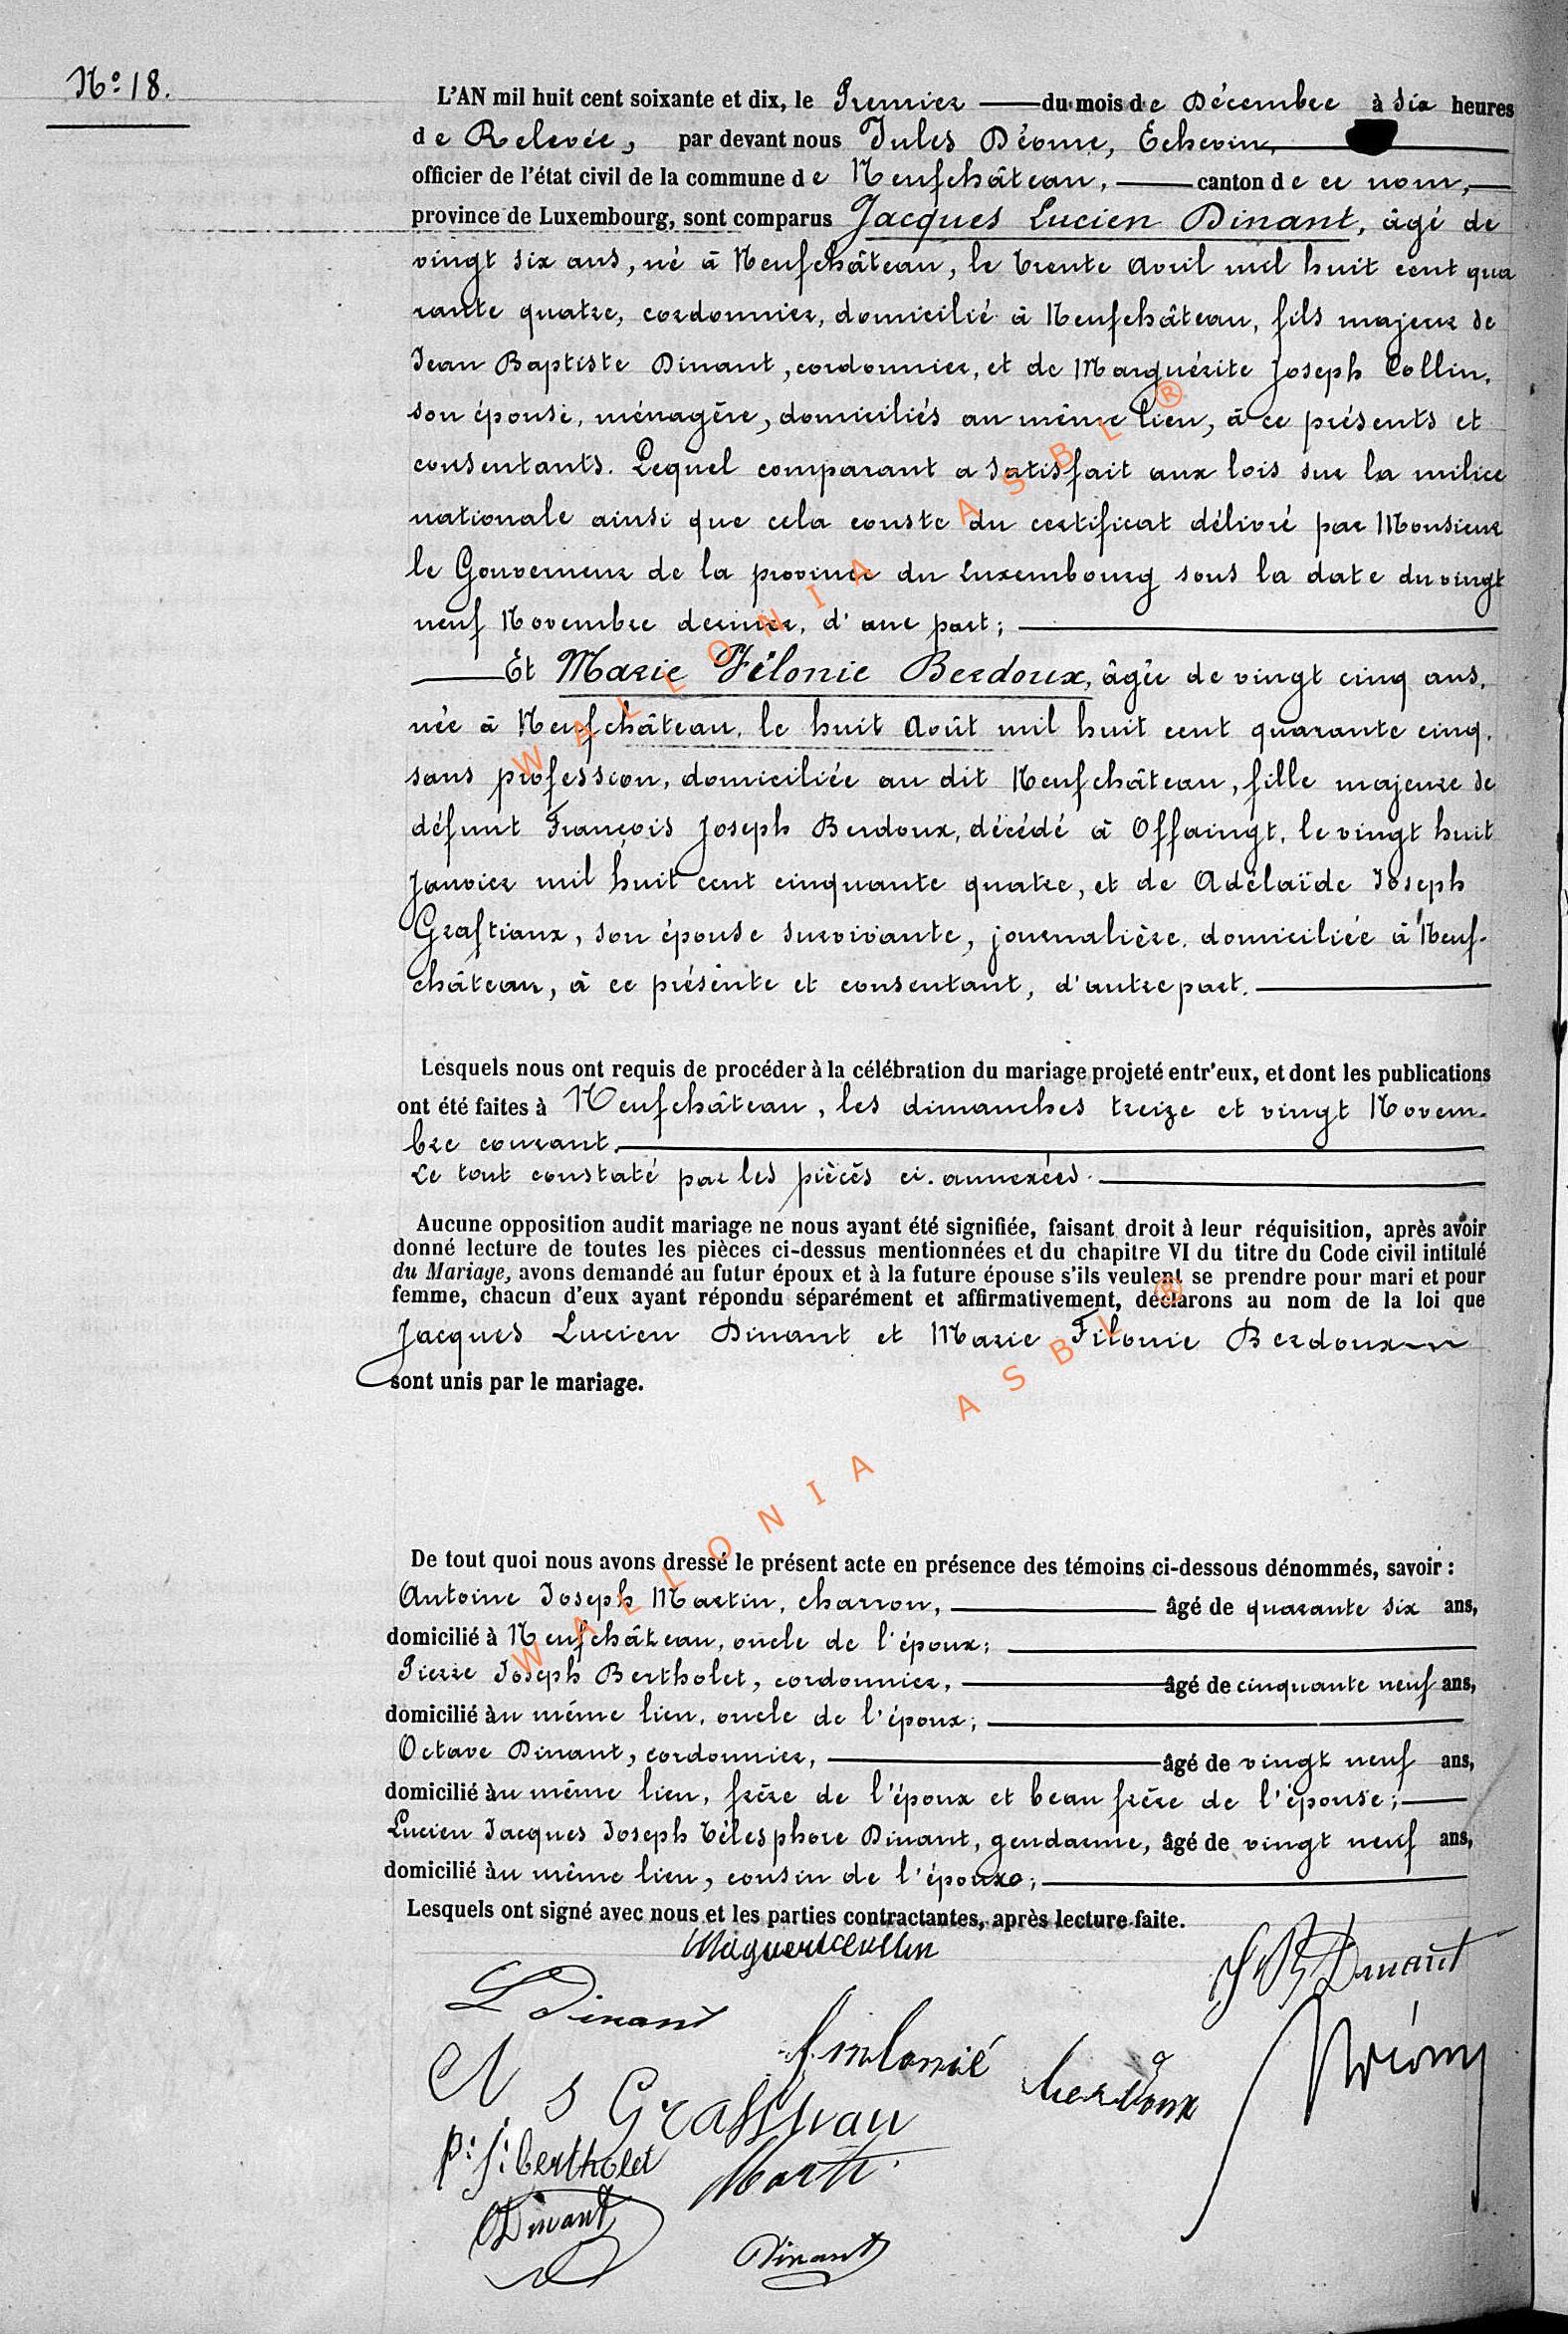 N° 18.
L'AN mil huit cent soixante et dix, le Premier du mois de Décembre à six heures
de Relevée, par devant nous Jules Déome, Échevin,
officier de l'état civil de la commune de Neufchâteau, canton de ce nom,
province de Luxembourg, sont comparus Jacques Lucien Dinant, âgé de
vingt six ans, né à Neufchâteau, le trente Avril mil huit cent qua
rante quatre, cordonnier, domicilié à Neufchâteau, fils majeur de
Jean Baptiste Dinant, cordonnier, et de Marguérite Joseph Collin,
son épouse, ménagère, domiciliés au même lieu, à ce présents et
consentants. Lequel comparant a satisfait aux lois sur la milice
nationale ainsi que cela conste du certificat délivré par Monsieur
le Gouverneur de la province du Luxembourg sous la date du vingt
neuf Novembre dernier, d'une part;
Et Marie Filonie Berdoux, âgée de vingt cinq ans,
née à Neufchâteau, le huit Août mil huit cent quarante cinq,
sans profession, domiciliée au dit Neufchâteau, fille majeure de
défunt François Joseph Berdoux, décédé à Offaingt, le vingt huit
Janvier mil huit cent cinquante quatre, et de Adélaïde Joseph
Graftiaux, son épouse survivante, journalière, domiciliée à Neuf-
château, à ce présente et consentant, d'autre part.
Lesquels nous ont requis de procéder à la célébration du mariage projeté entr'eux, et dont les publications
ont été faites à Neufchâteau, les dimanches treize et vingt Novem-
bre courant.
Le tout constaté par les pièces ci-annexées.
Aucune opposition audit mariage ne nous ayant été signifiée, faisant droit à leur réquisition, après avoir
donné lecture de toutes les pièces ci-dessus mentionnées et du chapitre VI du titre du Code civil intitulé
du Mariage, avons demandé au futur époux et à la future épouse s'ils veulent se prendre pour mari et pour
femme, chacun d'eux ayant répondu séparément et affirmativement, déclarons au nom de la loi que
Jacques Lucien Dinant et Marie Filonie Berdoux
sont unis par le mariage.
De tout quoi nous avons dressé le présent acte en présence des témoins ci-dessous dénommés, savoir :
Antoine Joseph Martin, charron, âgé de quarante six ans,
domicilié à Neufchâteau, oncle de l'époux;
Pierre Joseph Bertholet, cordonnier, âgé de cinquante neuf ans,
domicilié au même lieu, oncle de l'époux;
Octave Dinant, cordonnier, âgé de vingt neuf ans,
domicilié au même lieu, frère de l'époux et beau frère de l'épouse;
Lucien Jacques Joseph Télesphore Dinant, gendarme, âgé de vingt neuf ans,
domicilié au même lieu, cousin de l'époux;
Lesquels ont signé avec nous et les parties contractantes, après lecture faite.
J B Dinant
L Dinant
Berdoux
A J Graftiau
p: j: bertholet
Marti
O Dinant
Dinant
WALLONIA ASBL ®
WALLONIA ASBL ®